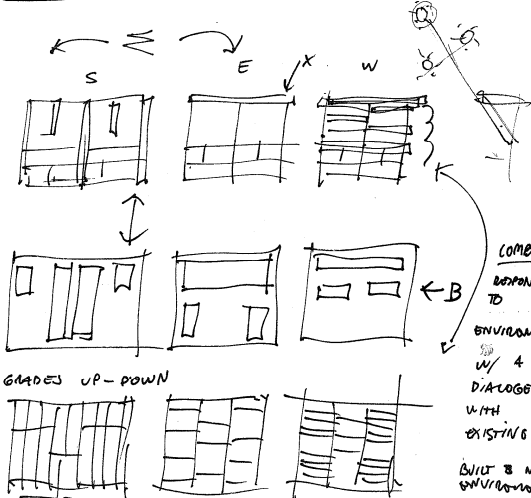 S
E
X
W
B
GRADES UP-DOWN
COMB
RESPON
TO
ENVIRON
W/ A
DIALOGE
WITH
EXISTING
BUILT & N
ENVIRON